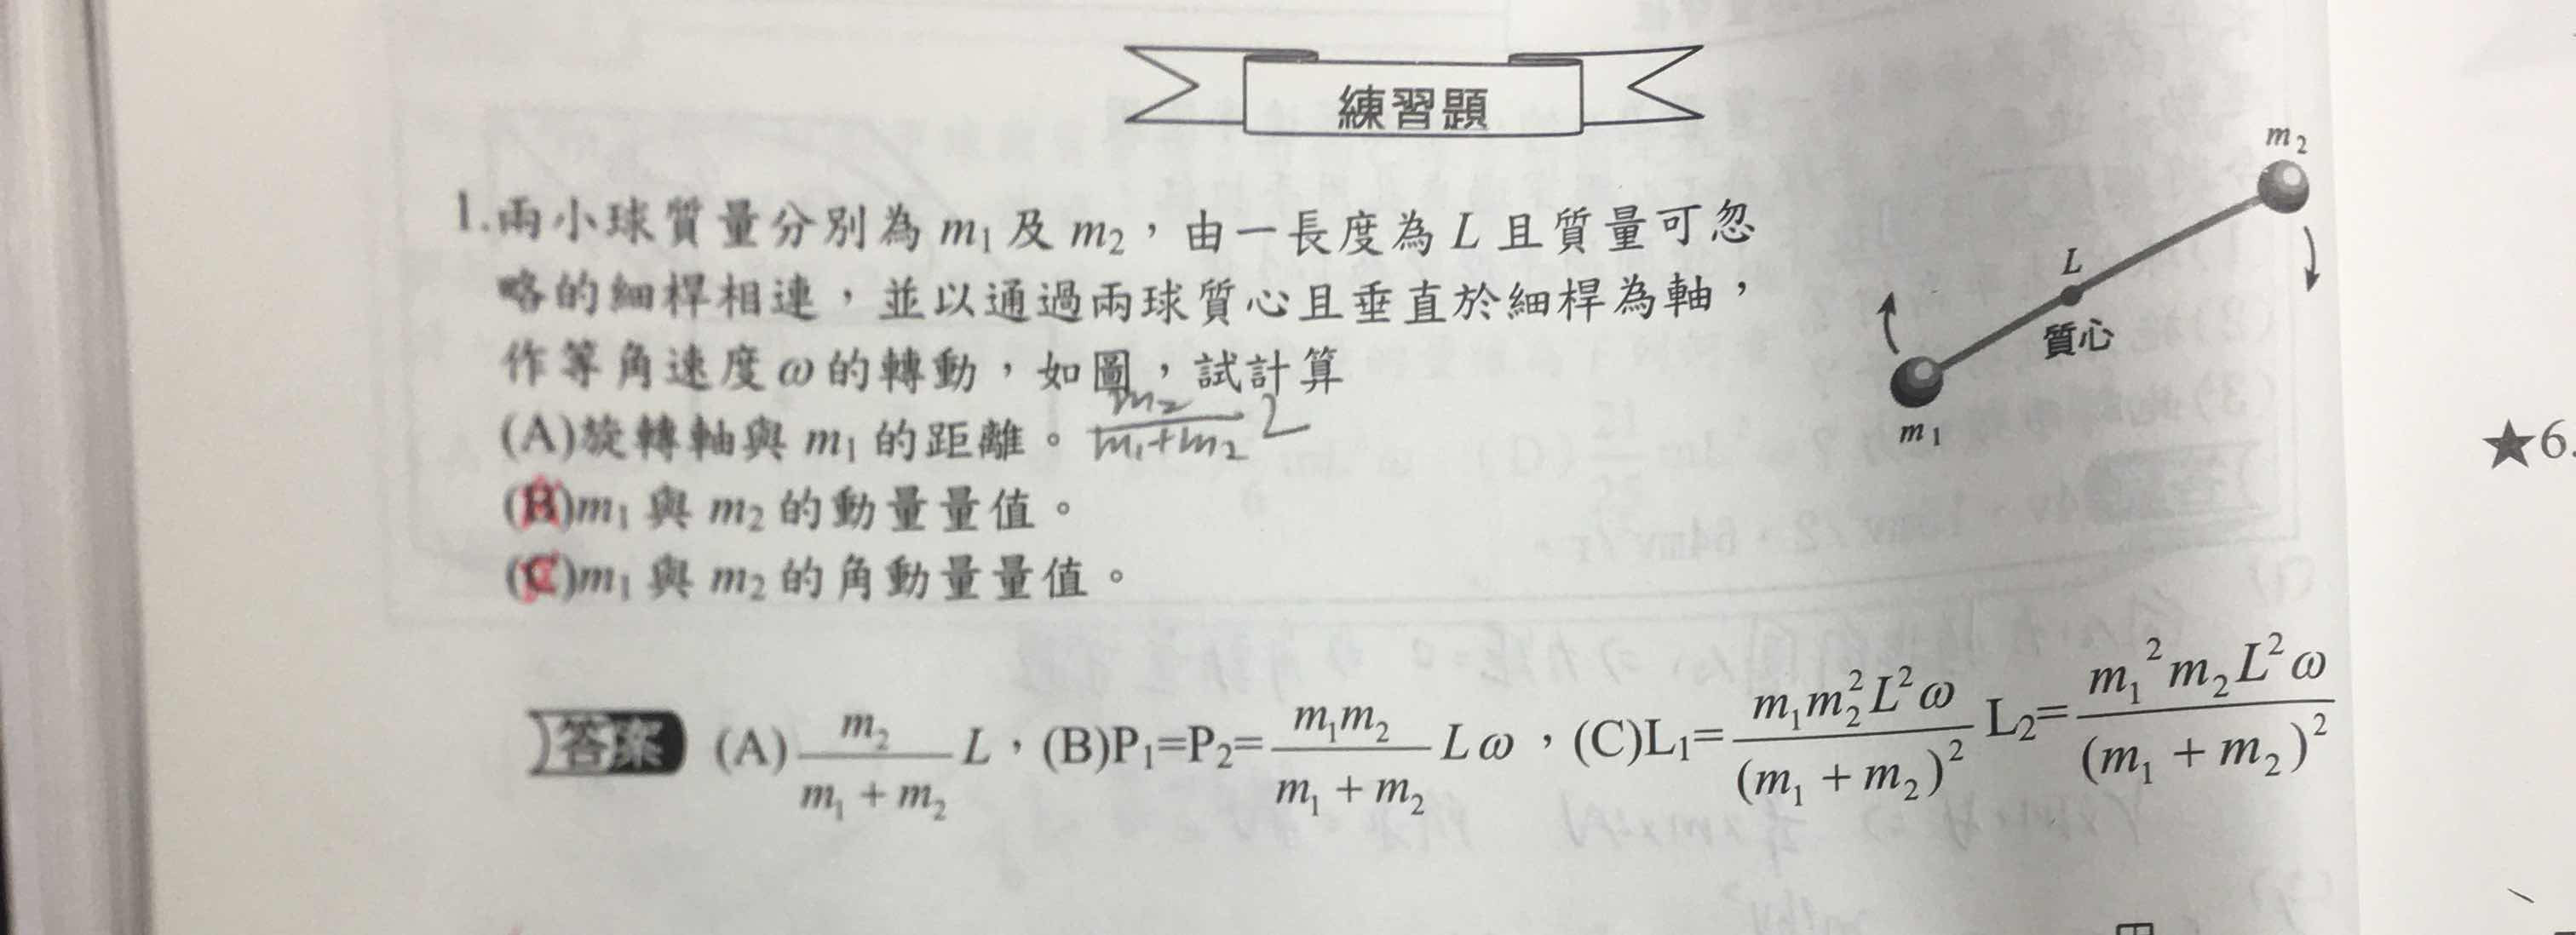 練習題
m₂
L
質心
m₁
1.兩小球質量分別為 m₁ 及 m₂，由一長度為 L 且質量可忽
略的細桿相連，並以通過兩球質心且垂直於細桿為軸，
作等角速度 ω 的轉動，如圖，試計算
(A)旋轉軸與 m₁ 的距離。 m₂/(m₁+m₂) L
(B)m₁ 與 m₂ 的動量量值。
(C)m₁ 與 m₂ 的角動量量值。
答案 (A) m₂/(m₁+m₂) L，(B)P₁=P₂= m₁m₂/(m₁+m₂) Lω，(C)L₁= m₁m₂²L²ω/(m₁+m₂)² L₂= m₁²m₂L²ω/(m₁+m₂)²
★6.